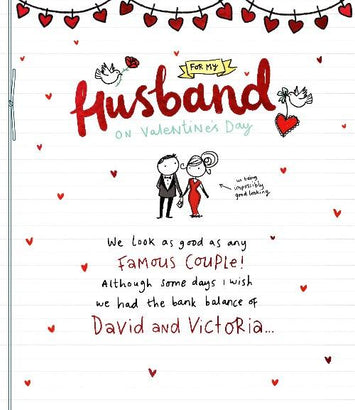 FOR MY
Husband
ON Valentine's Day
us being
impossibly
good looking.
We look as good as any
FAMOUS COUPLE!
Although some days I wish
we had the bank balance of
David and Victoria...